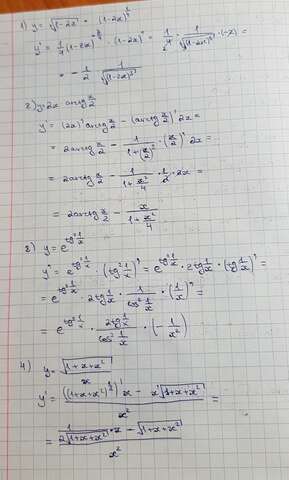 1) y = ∜(1-2x) = (1-2x)^(1/4)
y' = 1/4 (1-2x)^(-3/4) · (1-2x)' = 1/4 · 1/∜((1-2x)³) · (-2) =
= - 1/2 · 1/∜((1-2x)³)
2) y = 2x arctg x/2
y' = (2x)' arctg x/2 - (arctg x/2)' 2x =
= 2arctg x/2 - 1/(1+(x/2)²) · (x/2)' 2x =
= 2arctg x/2 - 1/(1+x²/4) · 1/2 · 2x =
= 2arctg x/2 - x/(1+x²/4)
3) y = e^(tg² 1/x)
y' = e^(tg² 1/x) · (tg² 1/x)' = e^(tg² 1/x) · 2tg 1/x · (tg 1/x)' =
= e^(tg² 1/x) · 2tg 1/x · 1/(cos² 1/x) · (1/x)' =
= e^(tg² 1/x) · (2tg 1/x)/(cos² 1/x) · (- 1/x²)
4) y = √(1+x+x²)/x
y' = (((1+x+x²)^(1/2))' x - x' √(1+x+x²))/x² =
= (1/(2√(1+x+x²)) · x - √(1+x+x²))/x²